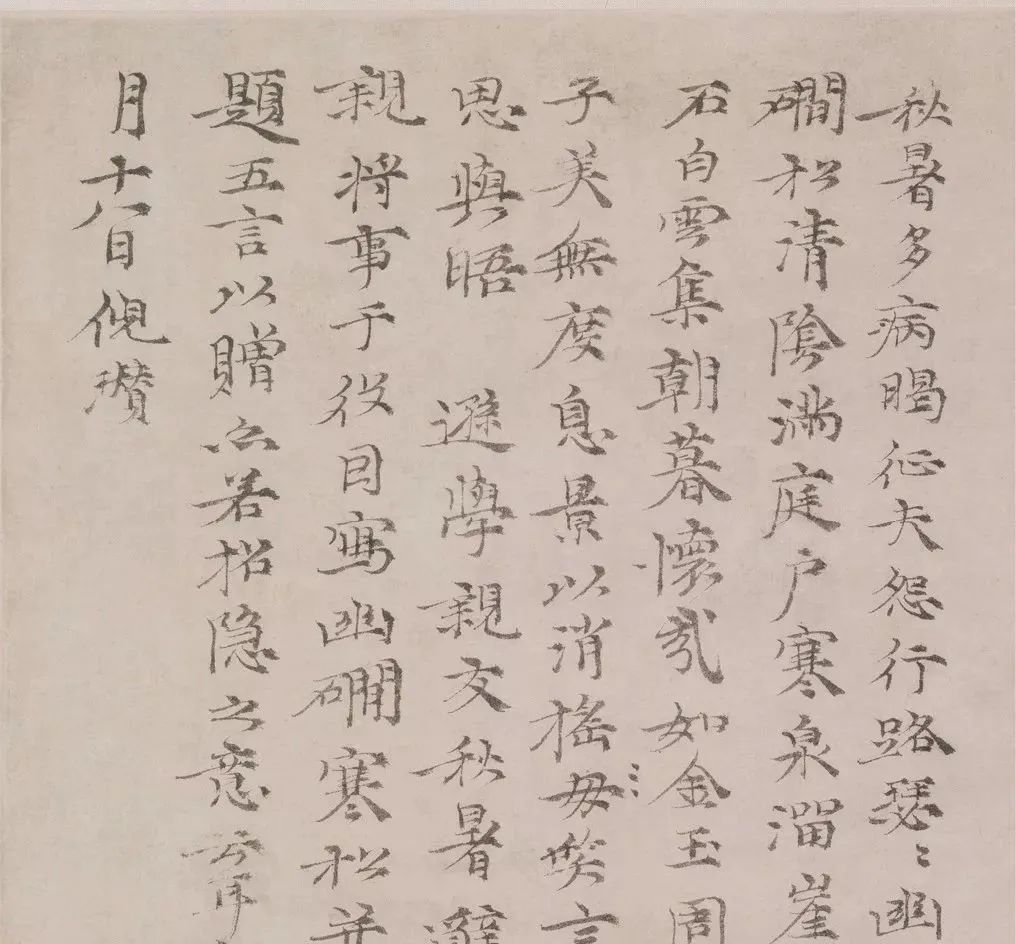 秋暑多病暍征夫怨行路瑟〻幽
磵松清陰滿庭户寒泉溜崖
石白雲集朝暮懷哉如金玉周
子美無度息景以消搖毋笑言
思與晤 遜學親友秋暑辭
親將事于役因寫幽磵寒松并
題五言以贈亦若招隱之意云耳
月十八日倪瓚